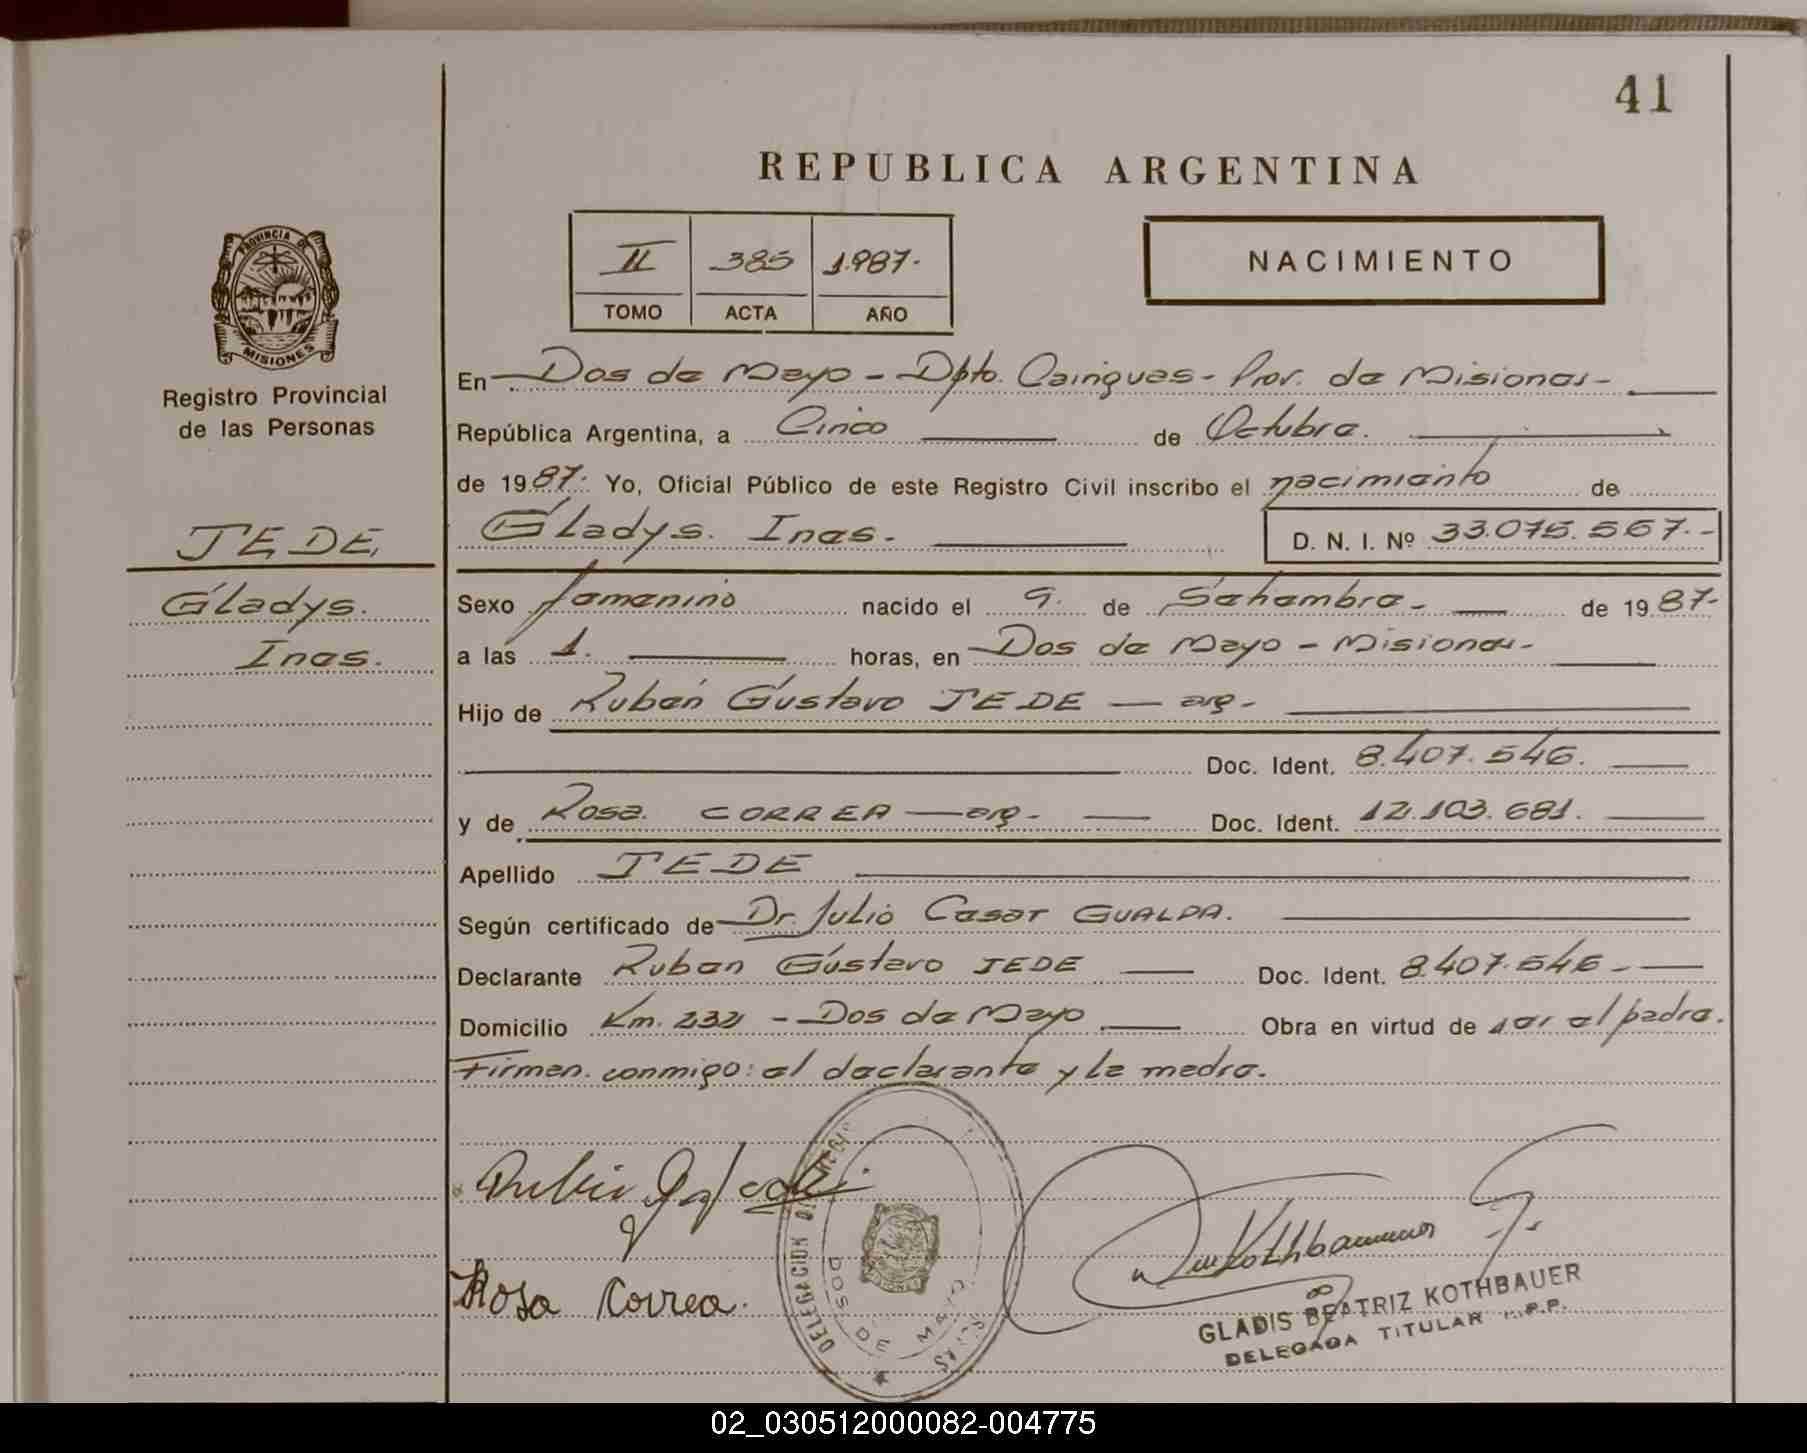 41
REPUBLICA ARGENTINA
II 385 1.987.-
TOMO ACTA AÑO
NACIMIENTO
PROVINCIA DE MISIONES
Registro Provincial
de las Personas
JEDE,
Gladys.
Ines.
En Dos de Mayo - Dpto. Cainguas - Prov. de Misiones -
República Argentina, a Cinco de Octubre.
de 1987.- Yo, Oficial Público de este Registro Civil inscribo el nacimiento de
Gladys. Ines. - D. N. I. Nº 33.075.567.-
Sexo femenino nacido el 9. de Setiembre - de 1987-
a las 1. horas, en Dos de Mayo - Misiones -
Hijo de Rubén Gustavo JEDE — arg. -
Doc. Ident. 8.407.546.
y de Rosa CORREA — arg. - Doc. Ident. 12.103.681.
Apellido JEDE
Según certificado de Dr. Julio Cesar GUALDA.
Declarante Ruben Gustavo JEDE Doc. Ident. 8.407.546 -
Domicilio Km. 232 - Dos de Mayo Obra en virtud de ser el padre.
Firman conmigo: el declarante y la madre.
Rosa Correa.
DELEGACION
DOS DE MAYO
GLADIS BEATRIZ KOTHBAUER
DELEGADA TITULAR R.P.P.
02_030512000082-004775